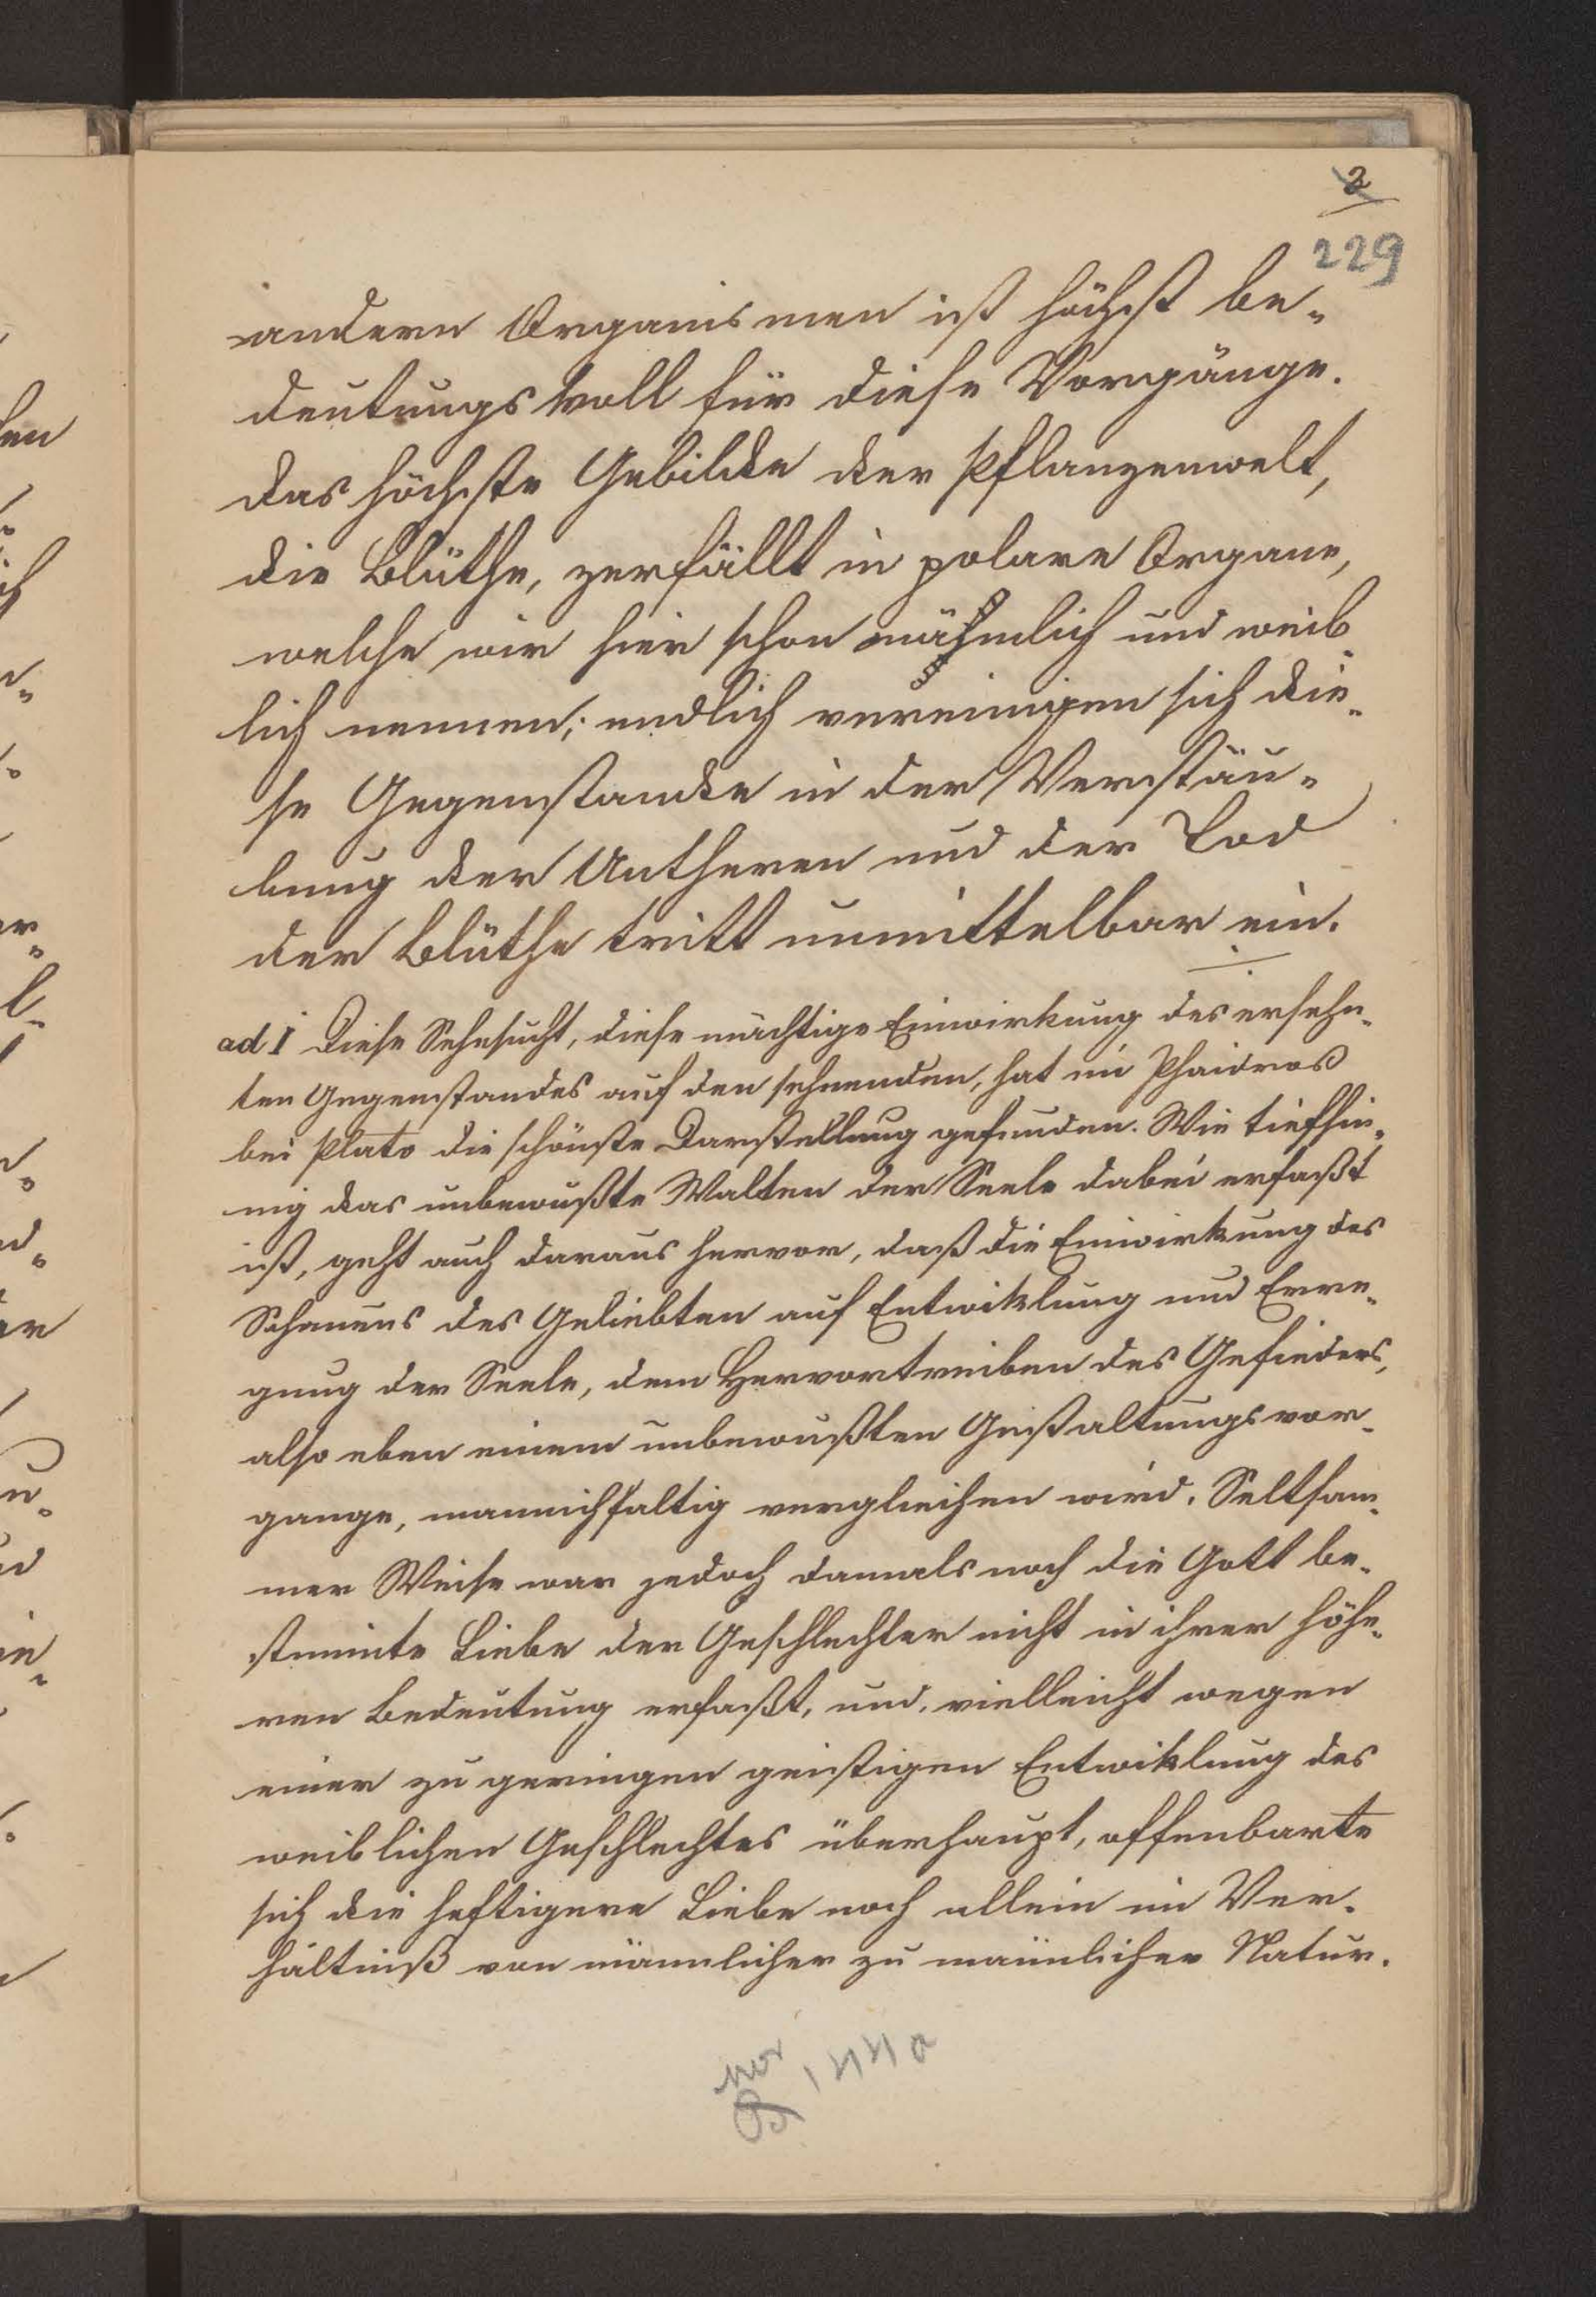 2
229
andern Organismen ist höchst be-
deutungsvoll für diese Vorgänge.
das höchste Gebilde der Pflanzenwelt,
die Blüthe, zerfällt in polare Organe,
welche wir hier schon mähnlich und weib-
lich nennen; endlich vereinigen sich die-
se Gegenstande in der Verstäu-
bung der Antheren und der Tod
der Blüthe tritt unmittelbar ein.
ad I Diese Sehnsucht, diese mächtige Einwirkung des ersehn-
ten Gegenstandes auf den sehnenden, hat im Phaidros
bei Plato die schönste Darstellung gefunden. Wie tiefsin-
nig das unbewußte Walten der Seele dabei erfaßt
ist, geht auch daraus hervor, daß die Einwirkung des
Schauens des Geliebten auf Entwiklung und Erre-
gung der Seele, dem Hervortreiben des Gefieders,
also eben einem unbewußten Gestaltungsvor-
gange, mannichfaltig verglichen wird. Seltsam-
mer Weise war jedoch damals noch die Gott be-
stimmte Liebe der Geschlechter nicht in ihrer höhe-
ren Bedeutung erfaßt, und, vielleicht wegen
einer zu geringen geistigen Entwiklung des
weiblichen Geschlechtes überhaupt, offenbarte
sich die heftigere Liebe noch allein im Ver-
hältniß von männlicher zu männlicher Natur.